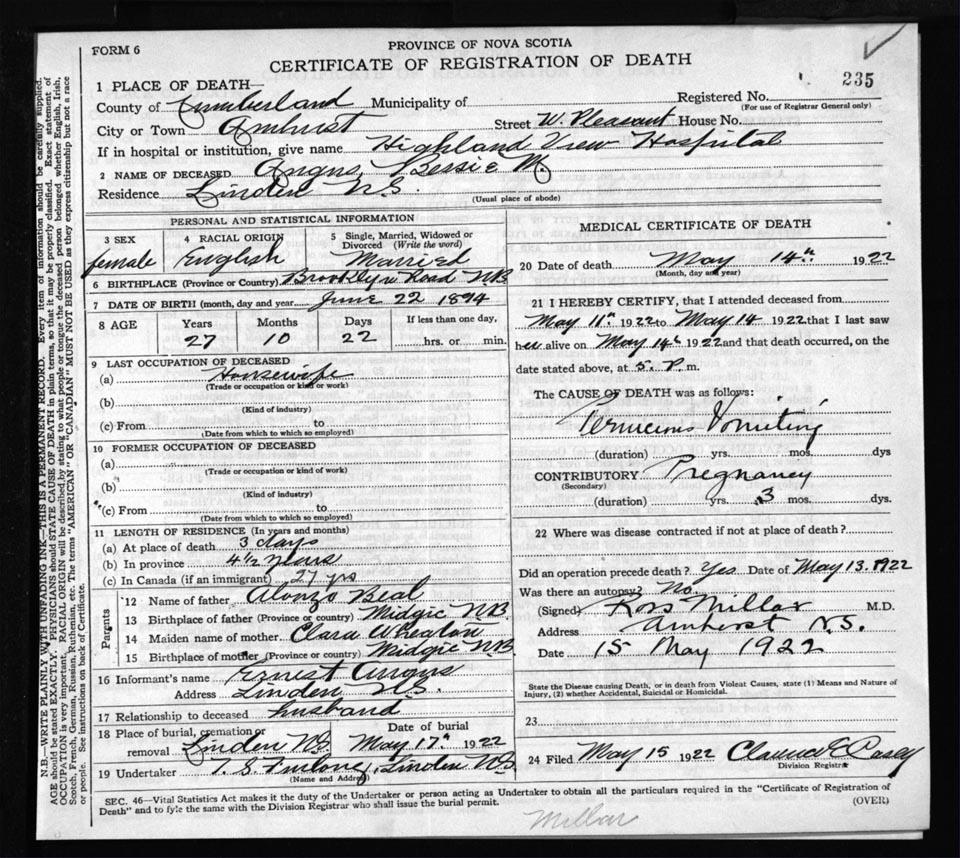 FORM 6
PROVINCE OF NOVA SCOTIA
CERTIFICATE OF REGISTRATION OF DEATH
235
1 PLACE OF DEATH—
Registered No.
(For use of Registrar General only)
County of Cumberland Municipality of
City or Town Amherst Street W. Pleasant House No.
If in hospital or institution, give name Highland View Hospital
2 NAME OF DECEASED Angus, Bessie M.
Residence Linden N.S.
(Usual place of abode)
PERSONAL AND STATISTICAL INFORMATION
3 SEX 4 RACIAL ORIGIN 5 Single, Married, Widowed or Divorced (Write the word)
female English Married
6 BIRTHPLACE (Province or Country) Brooklyn Road N.B.
7 DATE OF BIRTH (month, day and year) June 22 1894
8 AGE Years Months Days If less than one day,
27 10 22 hrs. or min.
9 LAST OCCUPATION OF DECEASED
(a) Housewife
(Trade or occupation or kind of work)
(b)
(Kind of industry)
(c) From to
(Date from which to which so employed)
10 FORMER OCCUPATION OF DECEASED
(a)
(Trade or occupation or kind of work)
(b)
(Kind of industry)
(c) From to
(Date from which to which so employed)
11 LENGTH OF RESIDENCE (In years and months)
(a) At place of death 3 days
(b) In province 4½ years
(c) In Canada (if an immigrant) 27 yrs
Parents
12 Name of father Alonzo Beal
13 Birthplace of father (Province or country) Midgic N.B.
14 Maiden name of mother Clara Wheaton
15 Birthplace of mother (Province or country) Midgic N.B.
16 Informant's name Ernest Angus
Address Linden N.S.
17 Relationship to deceased husband
18 Place of burial, cremation or removal Date of burial
Linden N.S. May 17th 1922
19 Undertaker T. S. Furlong, Linden N.S.
(Name and Address)
MEDICAL CERTIFICATE OF DEATH
20 Date of death May 14th 1922
(Month, day and year)
21 I HEREBY CERTIFY, that I attended deceased from
May 11th 1922 to May 14 1922 that I last saw
her alive on May 14th 1922 and that death occurred, on the
date stated above, at 5. P. m.
The CAUSE OF DEATH was as follows:
Pernicious Vomiting
(duration) yrs. mos. dys
CONTRIBUTORY Pregnancy
(Secondary)
(duration) yrs. 3 mos. dys.
22 Where was disease contracted if not at place of death?
Did an operation precede death? Yes Date of May 13. 1922
Was there an autopsy? No
(Signed) Ross Millar M.D.
Address Amherst N.S.
Date 15 May 1922
State the Disease causing Death, or in death from Violent Causes, state (1) Means and Nature of
Injury, (2) whether Accidental, Suicidal or Homicidal.
23
24 Filed May 15 1922 Clarence E Casey
Division Registrar
SEC. 46—Vital Statistics Act makes it the duty of the Undertaker or person acting as Undertaker to obtain all the particulars required in the "Certificate of Registration of
Death" and to fyle the same with the Division Registrar who shall issue the burial permit.
(OVER)
Millar
N.B.—WRITE PLAINLY WITH UNFADING INK—THIS IS A PERMANENT RECORD. Every item of information should be carefully supplied.
AGE should be stated EXACTLY. PHYSICIANS should STATE CAUSE OF DEATH in plain terms, so that it may be properly classified. Exact statement of
OCCUPATION is very important. RACIAL ORIGIN will be described by stating to what people or tongue the deceased person belonged, whether English, Irish,
Scotch, French, German, Russian, Ruthenian, etc. The terms "AMERICAN" OR "CANADIAN" MUST NOT BE USED as they express citizenship but not a race
or people. See instructions on back of Certificate.